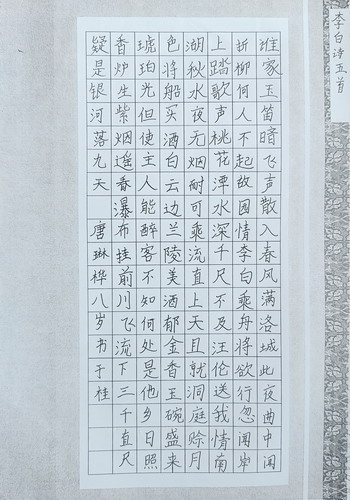 李白诗五首
谁家玉笛暗飞声散入春风满洛城此夜曲中闻
折柳何人不起故园情李白乘舟将欲行忽闻岸
上踏歌声桃花潭水深千尺不及汪伦送我情南
湖秋水夜无烟耐可乘流直上天且就洞庭赊月
色将船买酒白云边兰陵美酒郁金香玉碗盛来
琥珀光但使主人能醉客不知何处是他乡日照
香炉生紫烟遥看瀑布挂前川飞流下三千直尺
疑是银河落九天 唐琳桦八岁书于桂